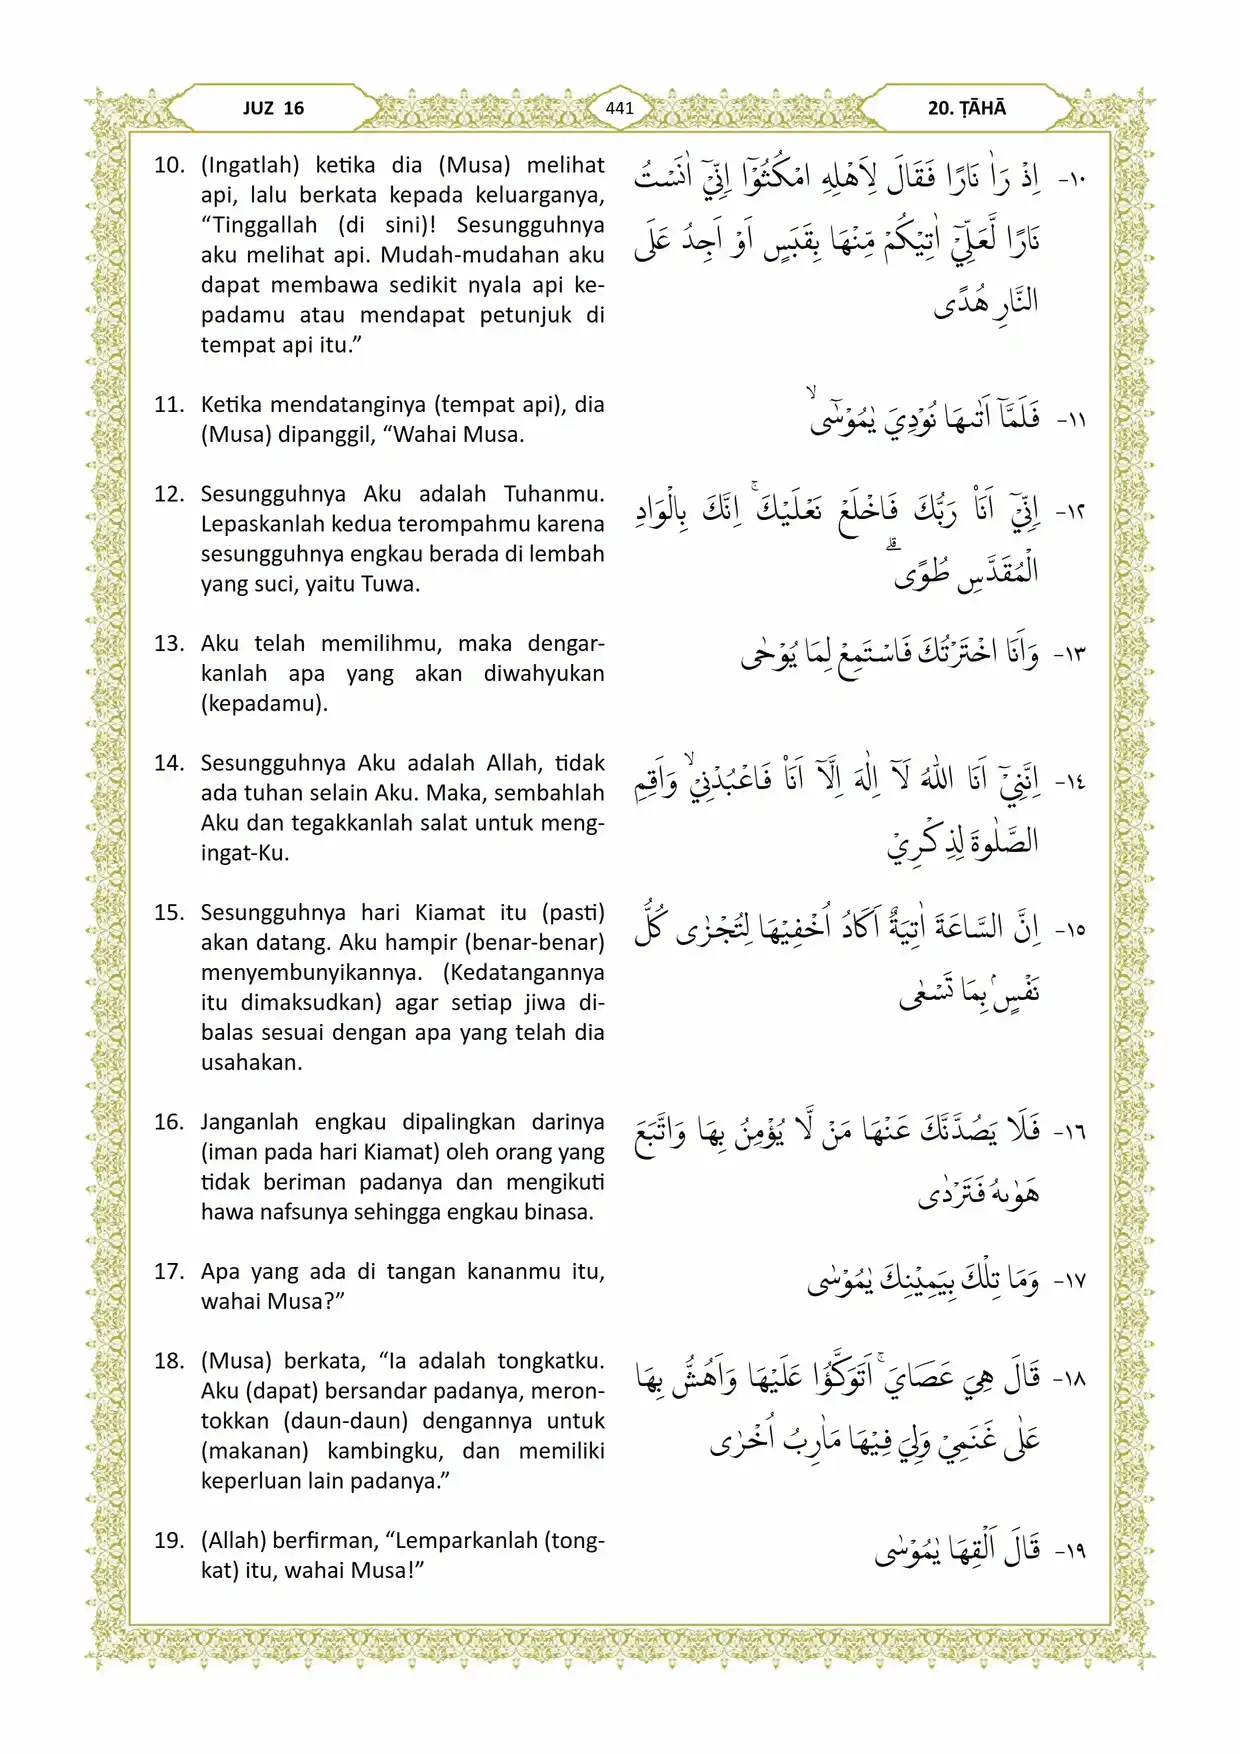 JUZ 16
441
20. ṬĀHĀ
10. (Ingatlah) ketika dia (Musa) melihat
api, lalu berkata kepada keluarganya,
“Tinggallah (di sini)! Sesungguhnya
aku melihat api. Mudah-mudahan aku
dapat membawa sedikit nyala api ke-
padamu atau mendapat petunjuk di
tempat api itu.”
١٠- اِذْ رَاٰ نَارًا فَقَالَ لِاَهْلِهِ امْكُثُوْٓا اِنِّيْٓ اٰنَسْتُ
نَارًا لَّعَلِّيْٓ اٰتِيْكُمْ مِّنْهَا بِقَبَسٍ اَوْ اَجِدُ عَلَى
النَّارِ هُدًى
11. Ketika mendatanginya (tempat api), dia
(Musa) dipanggil, “Wahai Musa.
١١- فَلَمَّآ اَتٰىهَا نُوْدِيَ يٰمُوْسٰٓى ۙ
12. Sesungguhnya Aku adalah Tuhanmu.
Lepaskanlah kedua terompahmu karena
sesungguhnya engkau berada di lembah
yang suci, yaitu Tuwa.
١٢- اِنِّيْٓ اَنَا۠ رَبُّكَ فَاخْلَعْ نَعْلَيْكَۚ اِنَّكَ بِالْوَادِ
الْمُقَدَّسِ طُوًى ۗ
13. Aku telah memilihmu, maka dengar-
kanlah apa yang akan diwahyukan
(kepadamu).
١٣- وَاَنَا اخْتَرْتُكَ فَاسْتَمِعْ لِمَا يُوْحٰى
14. Sesungguhnya Aku adalah Allah, tidak
ada tuhan selain Aku. Maka, sembahlah
Aku dan tegakkanlah salat untuk meng-
ingat-Ku.
١٤- اِنَّنِيْٓ اَنَا اللّٰهُ لَآ اِلٰهَ اِلَّآ اَنَا۠ فَاعْبُدْنِيْۙ وَاَقِمِ
الصَّلٰوةَ لِذِكْرِيْ
15. Sesungguhnya hari Kiamat itu (pasti)
akan datang. Aku hampir (benar-benar)
menyembunyikannya. (Kedatangannya
itu dimaksudkan) agar setiap jiwa di-
balas sesuai dengan apa yang telah dia
usahakan.
١٥- اِنَّ السَّاعَةَ اٰتِيَةٌ اَكَادُ اُخْفِيْهَا لِتُجْزٰى كُلُّ
نَفْسٍۢ بِمَا تَسْعٰى
16. Janganlah engkau dipalingkan darinya
(iman pada hari Kiamat) oleh orang yang
tidak beriman padanya dan mengikuti
hawa nafsunya sehingga engkau binasa.
١٦- فَلَا يَصُدَّنَّكَ عَنْهَا مَنْ لَّا يُؤْمِنُ بِهَا وَاتَّبَعَ
هَوٰىهُ فَتَرْدٰى
17. Apa yang ada di tangan kananmu itu,
wahai Musa?”
١٧- وَمَا تِلْكَ بِيَمِيْنِكَ يٰمُوْسٰى
18. (Musa) berkata, “Ia adalah tongkatku.
Aku (dapat) bersandar padanya, meron-
tokkan (daun-daun) dengannya untuk
(makanan) kambingku, dan memiliki
keperluan lain padanya.”
١٨- قَالَ هِيَ عَصَايَۚ اَتَوَكَّؤُا عَلَيْهَا وَاَهُشُّ بِهَا
عَلٰى غَنَمِيْ وَلِيَ فِيْهَا مَاٰرِبُ اُخْرٰى
19. (Allah) berfirman, “Lemparkanlah (tong-
kat) itu, wahai Musa!”
١٩- قَالَ اَلْقِهَا يٰمُوْسٰى